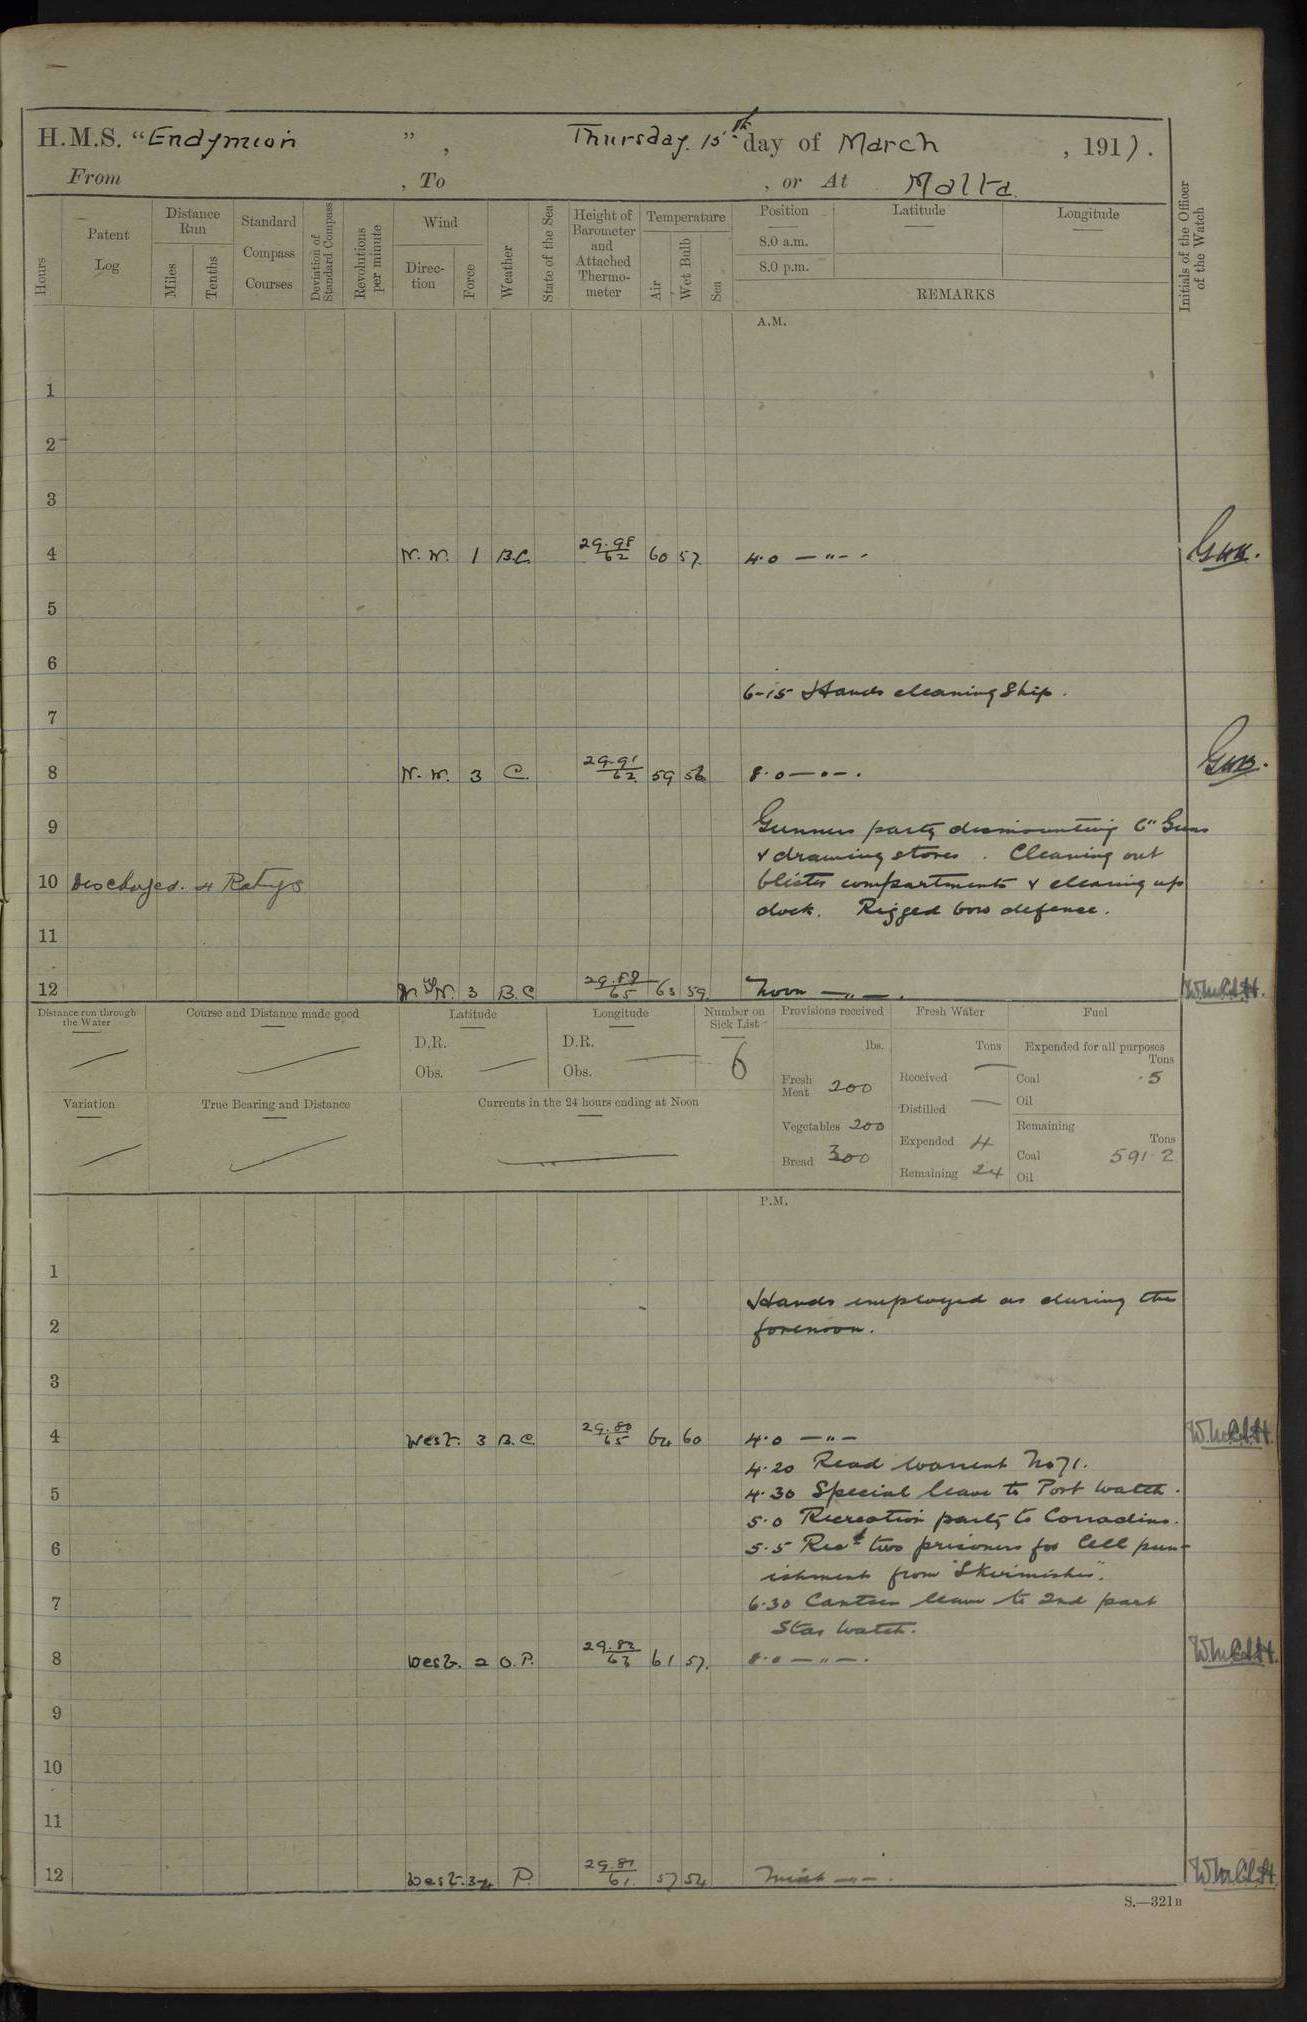 H.M.S. "Endymion", Thursday. 15th day of March, 1917.
From , To , or At Malta.
Hours
Patent Log
Distance Run
Miles
Tenths
Standard Compass Courses
Deviation of Standard Compass
Revolutions per minute
Wind
Direction
Force
Weather
State of the Sea
Height of Barometer and Attached Thermometer
Temperature
Air
Wet Bulb
Sea
Position
8.0 a.m.
8.0 p.m.
Latitude
Longitude
REMARKS
Initials of the Officer of the Watch
A.M.
1
2
3
4 N.W. 1 B.C. 29.98/62 60 57. 4.0 — " — .
5
6
6-15 Hands cleaning Ship.
7
8 N.W. 3 C. 29.91/62 59 56 8.0 — " — .
9 Gunners party dismounting 6" Guns
& drawing stores. Cleaning out
10 Discharged. 4 Ratings blister compartments & clearing up
dock. Rigged bow defence.
11
12 3 B.C 65 63 59. Noon — " — .
Distance run through the Water
Course and Distance made good
Latitude
D.R.
Obs.
Longitude
D.R.
Obs.
Number on Sick List
6
Provisions received
lbs.
Fresh Meat 200
Vegetables 200
Bread 300
Fresh Water
Tons
Received
Distilled
Expended 4
Remaining 24
Fuel
Expended for all purposes
Tons
Coal .5
Oil
Remaining
Tons
Coal 591.2
Oil
Variation
True Bearing and Distance
Currents in the 24 hours ending at Noon
P.M.
1
Hands employed as during the
2 forenoon.
3
4 West. 3 B.C. 29.80/65 64 60 4.0 — " —
4.20 Read Warrant No 71.
5 4.30 Special leave to Port Watch.
5.0 Recreation party to Corradino.
6 5.5 Recd two prisoners for Cell pun-
ishment from "Skirmisher".
7 6.30 Canteen leave to 2nd part
Star Watch.
8 West. 2 O.P. 29.82/63 61 57. 8.0 — " — .
9
10
11
12 West. 3-4 P. 29.81/61. 57 54 Midt — " — .
S.—321B